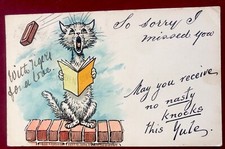 So sorry I
missed you
With
for a
May you receive
no nasty
knocks
this Yule.